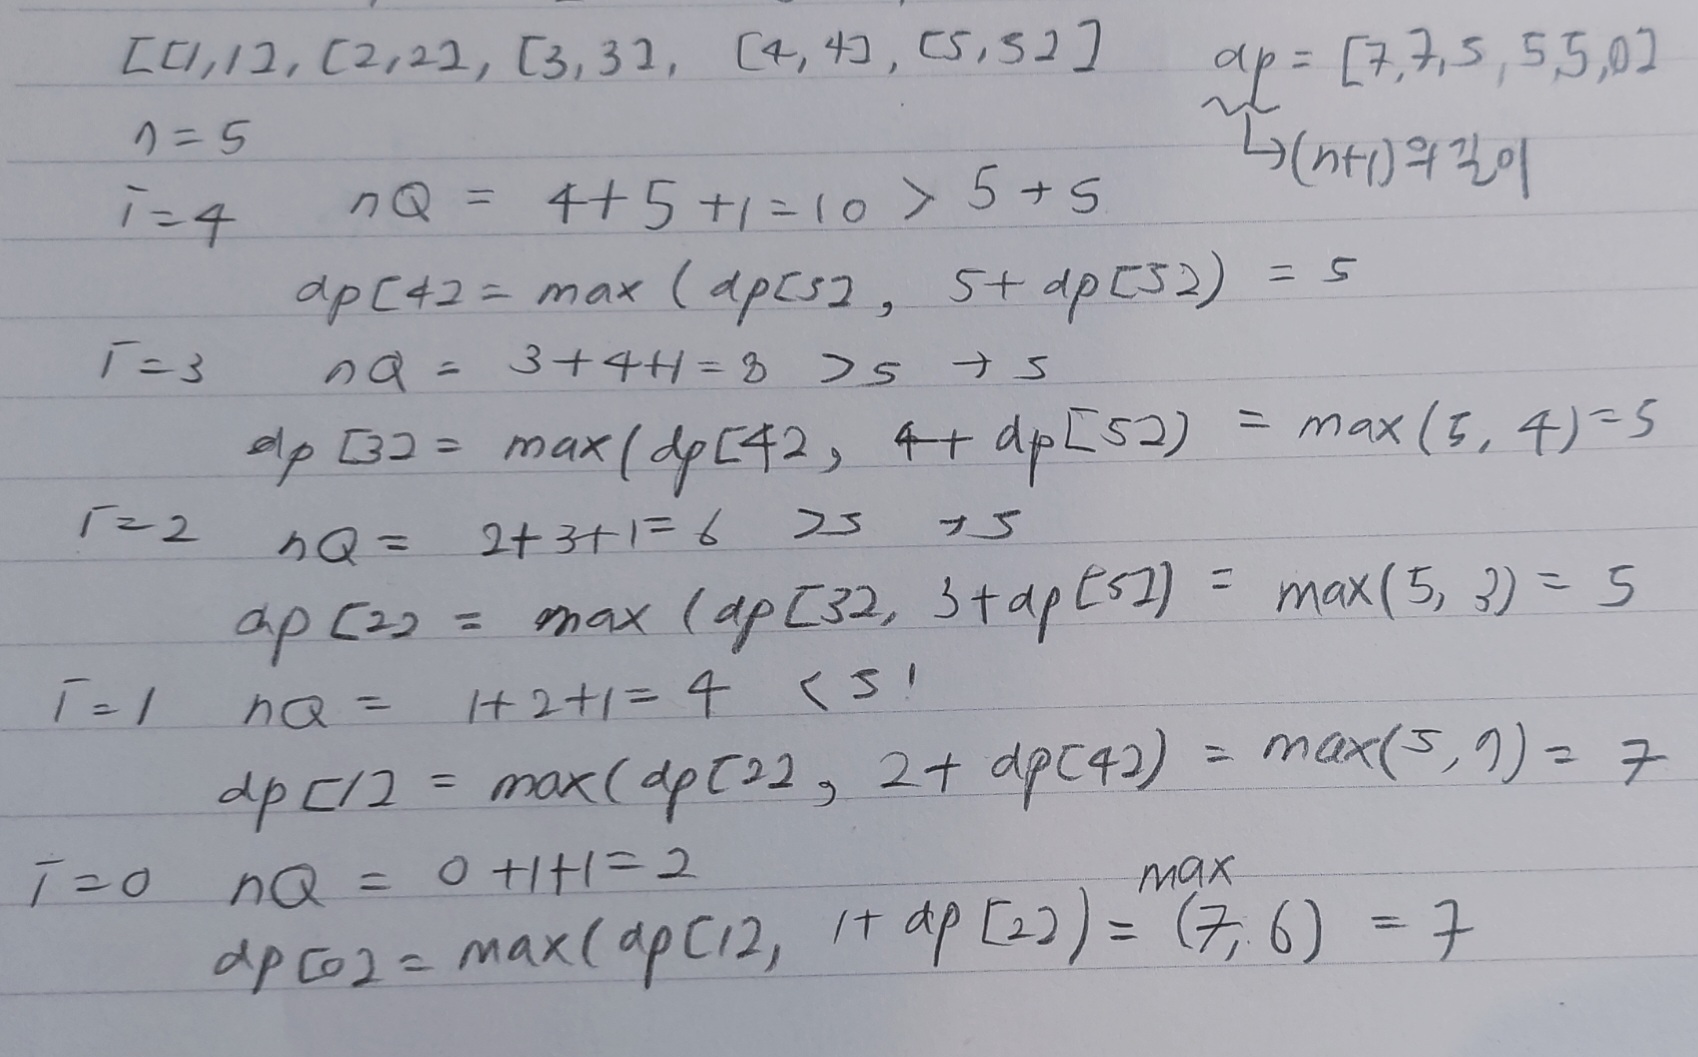 [[1,1], [2,2], [3,3], [4,4], [5,5]]
dp = [7,7,5,5,5,0]
↳(n+1)의 길이
n=5
i=4 nQ = 4+5+1=10 > 5 → 5
dp[4] = max(dp[5], 5+dp[5]) = 5
i=3 nQ = 3+4+1=8 >5 → 5
dp[3] = max(dp[4], 4+dp[5]) = max(5, 4)=5
i=2 nQ = 2+3+1=6 >5 →5
dp[2] = max(dp[3], 3+dp[5]) = max(5, 3) = 5
i=1 nQ = 1+2+1=4 <5!
dp[1] = max(dp[2], 2+dp[4]) = max(5,7) = 7
i=0 nQ = 0+1+1=2
dp[0] = max(dp[1], 1+dp[2]) = max(7,6) = 7